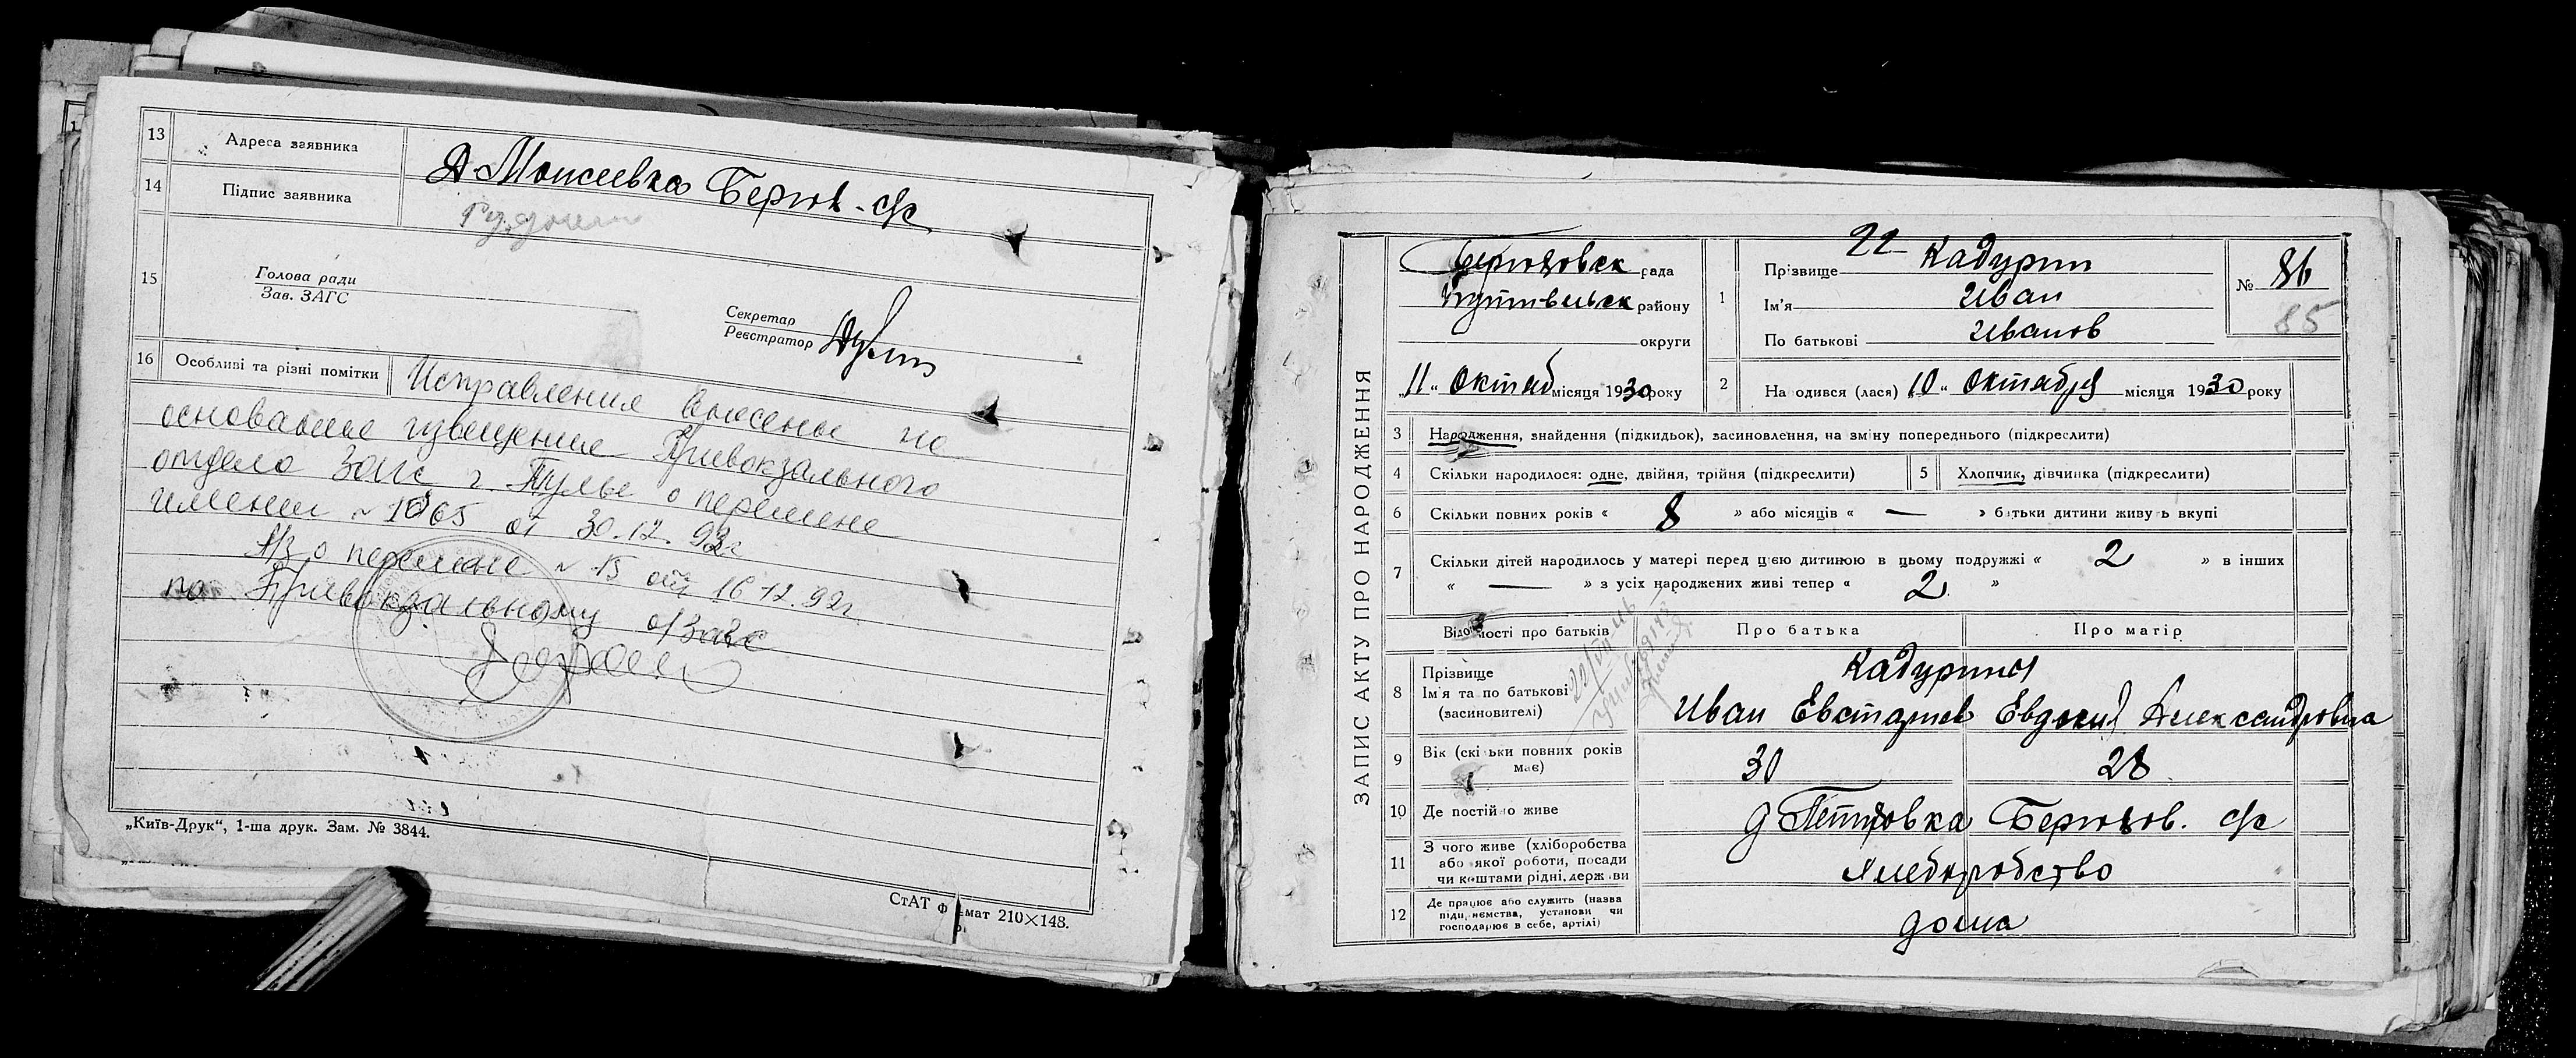 13 Адреса заявника Д Моисеевка Берюх. с/с
14 Підпис заявника
15 Голова ради
Зав. ЗАГС
Секретар
Реєстратор
16 Особливі та різні помітки Исправления внесены на
основании извещения Привокзального
отдела Загс г. Тулы о перемене
имени № 1065 от 30.12.92г
А/з о перемене № 15 от 16.12.92г.
по Привокзальному о/Загс
„Київ-Друк“, 1-ша друк. Зам. № 3844.
СтАТ формат 210×148.
ЗАПИС АКТУ ПРО НАРОДЖЕННЯ
рада
Путивльск району
округи
„11“ Октяб місяця 1930 року
22
1 Прізвище Кадурин
Ім'я Иван
По батькові Иванов
№ 86
85
2 Народився (лася) „10“ Октября місяця 1930 року
3 Народження, знайдення (підкидьок), засиновлення, на зміну попереднього (підкреслити)
4 Скільки народилося: одне, двійня, трійня (підкреслити) 5 Хлопчик, дівчинка (підкреслити)
6 Скільки повних років « 8 » або місяців « — » батьки дитини живуть вкупі
7 Скільки дітей народилось у матері перед цією дитиною в цьому подружжі « 2 » в інших
« — » з усіх народжених живі тепер « 2 »
Відомості про батьків Про батька Про матір
8 Прізвище Кадурины
Ім'я та по батькові
(засиновителі) Иван Евстафиев Евдокия Александровна
9 Вік (скільки повних років
має) 30 28
10 Де постійно живе с/с
11 З чого живе (хліборобства
або якої роботи, посади
чи коштами рідні, держави Хлеборобство
12 Де працює або служить (назва
підприємства, установи чи
господарює в себе, артілі) дома